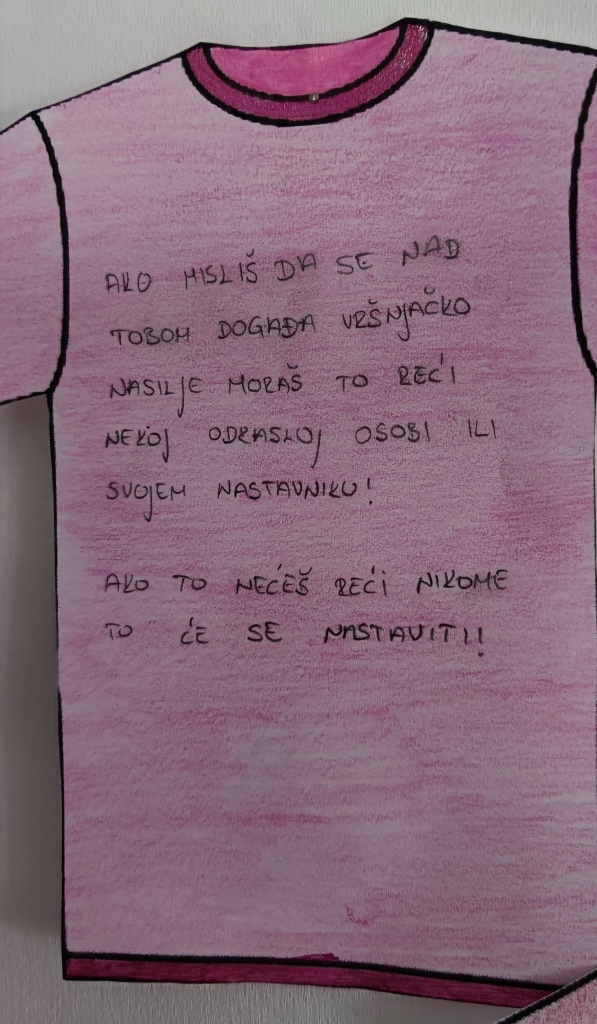 AKO MISLIŠ DA SE NAD
TOBOM DOGAĐA VRŠNjAČKO
NASILjE MORAŠ TO REĆI
NEKOj ODRASLOj OSOBI ILI
SVOjEM NASTAVNIKU!
AKO TO NEĆEŠ REĆI NIKOME
TO ĆE SE NASTAVITI!